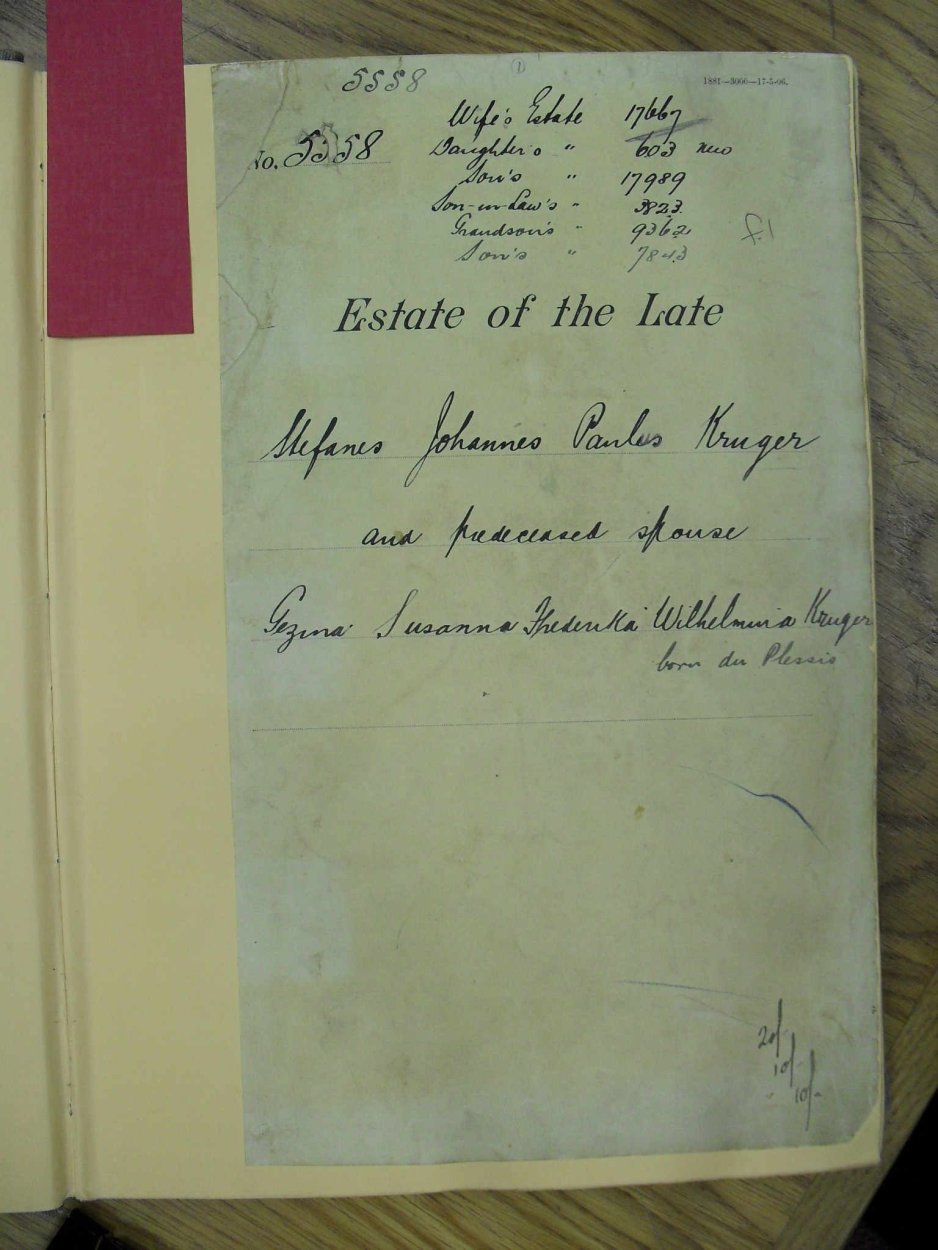 5558
1
1881—3000—17-5-06.
No. 5558
Wife's Estate 17667
Daughter's " 603 new
Son's " 17989
Son-in-Law's " 3823
Grandson's " 9362
Son's " 7843
f.1
Estate of the Late
Stefanes Johannes Paulus Kruger
and predeceased spouse
Gezina Susanna Frederika Wilhelmina Kruger
born du Plessis
20/-
10/-
10/-